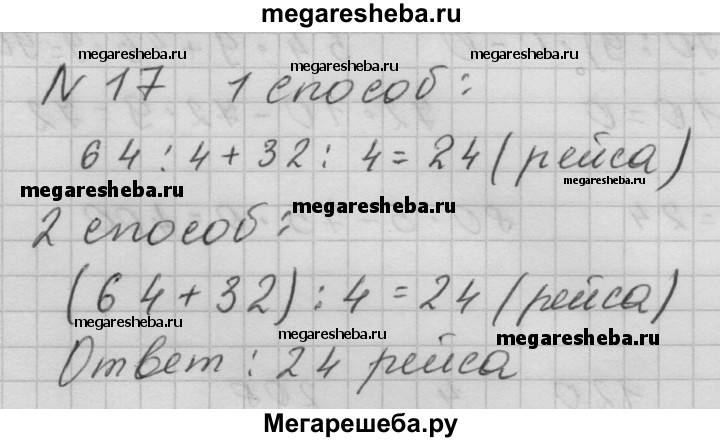 megaresheba.ru
megaresheba.ru megaresheba.ru megaresheba.ru
№ 17 1 способ:
64:4+32:4=24(рейса)
megaresheba.ru megaresheba.ru megaresheba.ru
2 способ:
(64+32):4=24(рейса)
megaresheba.ru megaresheba.ru megaresheba.ru
Ответ: 24 рейса
Мегарешеба.ру